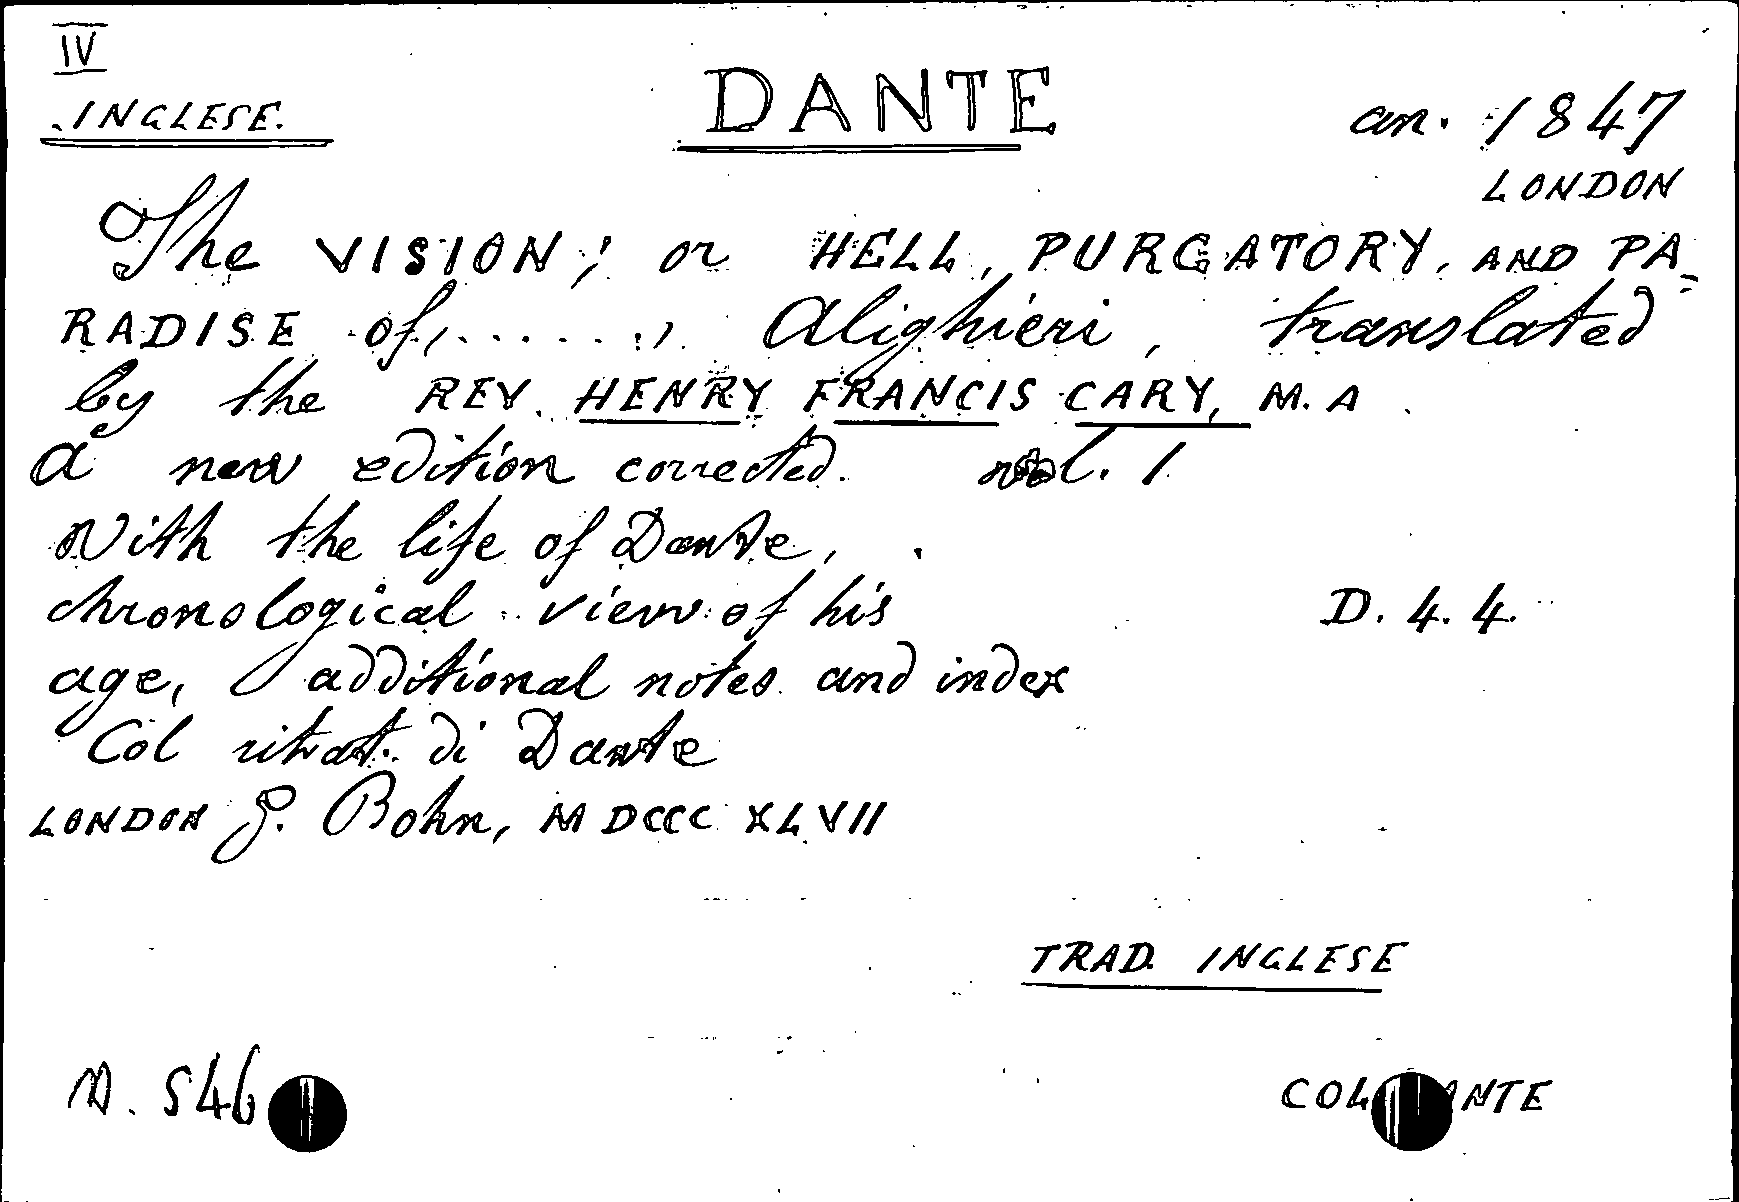 IV
INGLESE.
DANTE
an. 1847
LONDON
The VISION; or HELL, PURGATORY, AND PA=
RADISE of, ....., Alighieri, translated
by the REV. HENRY FRANCIS CARY, M. A.
A new edition corrected. vol. 1
With the life of Dante,
chronological view of his
age, additional notes and index
D. 4. 4.
Col ritrat. di Dante
LONDON G. Bohn, MDCCCXLVII
TRAD. INGLESE
N. 546